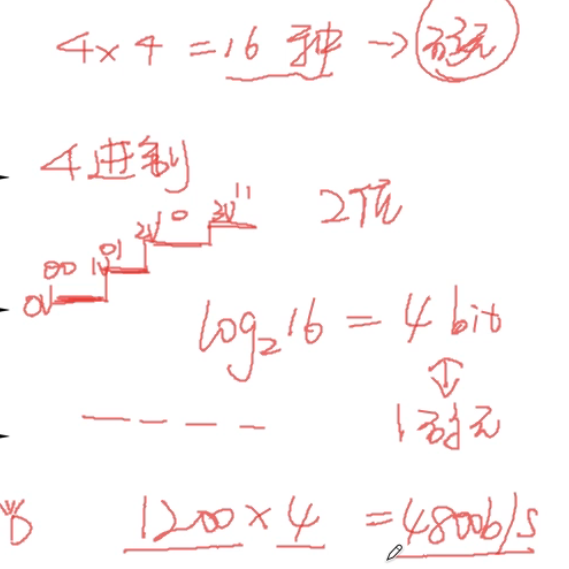 4×4=16种→码元
4进制
00 01 10 11 2位
0V 1V 2V 3V
log₂16=4bit
↕
1码元
D 1200×4=4800b/s